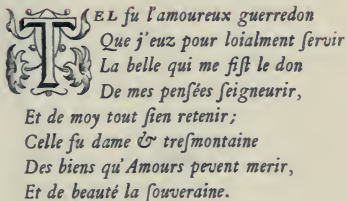 TEL fu l'amoureux guerredon
Que j'euz pour loialment ſervir
La belle qui me fiſt le don
De mes penſées ſeigneurir,
Et de moy tout ſien retenir;
Celle fu dame & treſmontaine
Des biens qu'Amours pevent merir,
Et de beauté la ſouveraine.